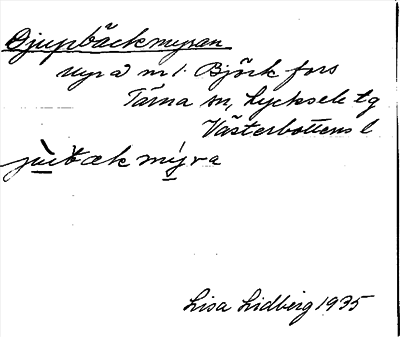 Djupbäckmyran
myra m 1. Björkfors
Tärna sn, Lycksele tg
Västerbottens l
jùẁbækmýra
Lisa Lidberg 1935